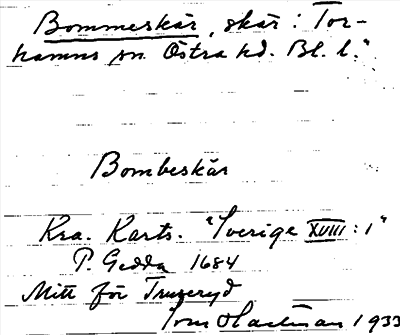 Bommeskär, skär: Tor-
hamns sn. Östra hd. Bl. l."
Bombeskär
Kra. Karts. "Sverige XVIII: 1"
P. Gedda 1684
Mitt för Truseryd
Tom Hartman 1933